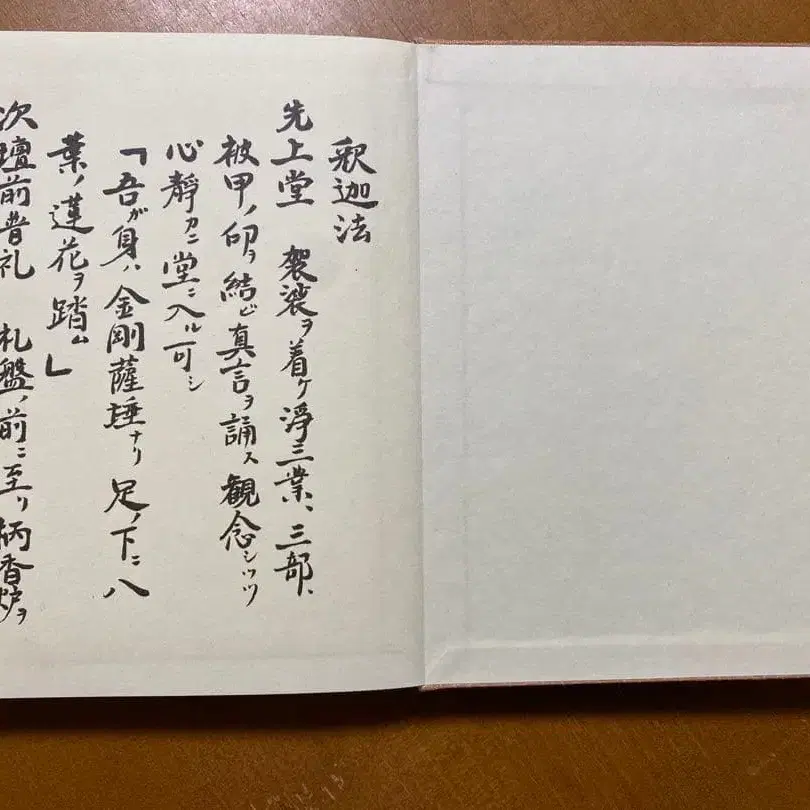 釈迦法
先上堂 袈裟ヲ着ケ淨三業、三部、
被甲ノ印ヲ結ビ真言ヲ誦ス観念シツツ
心靜カニ堂ニ入ル可シ
「吾ガ身ハ金剛薩埵ナリ足ノ下ニ八
葉ノ蓮花ヲ踏ム」
次壇前普礼 礼盤ノ前ニ至リ柄香炉ヲ